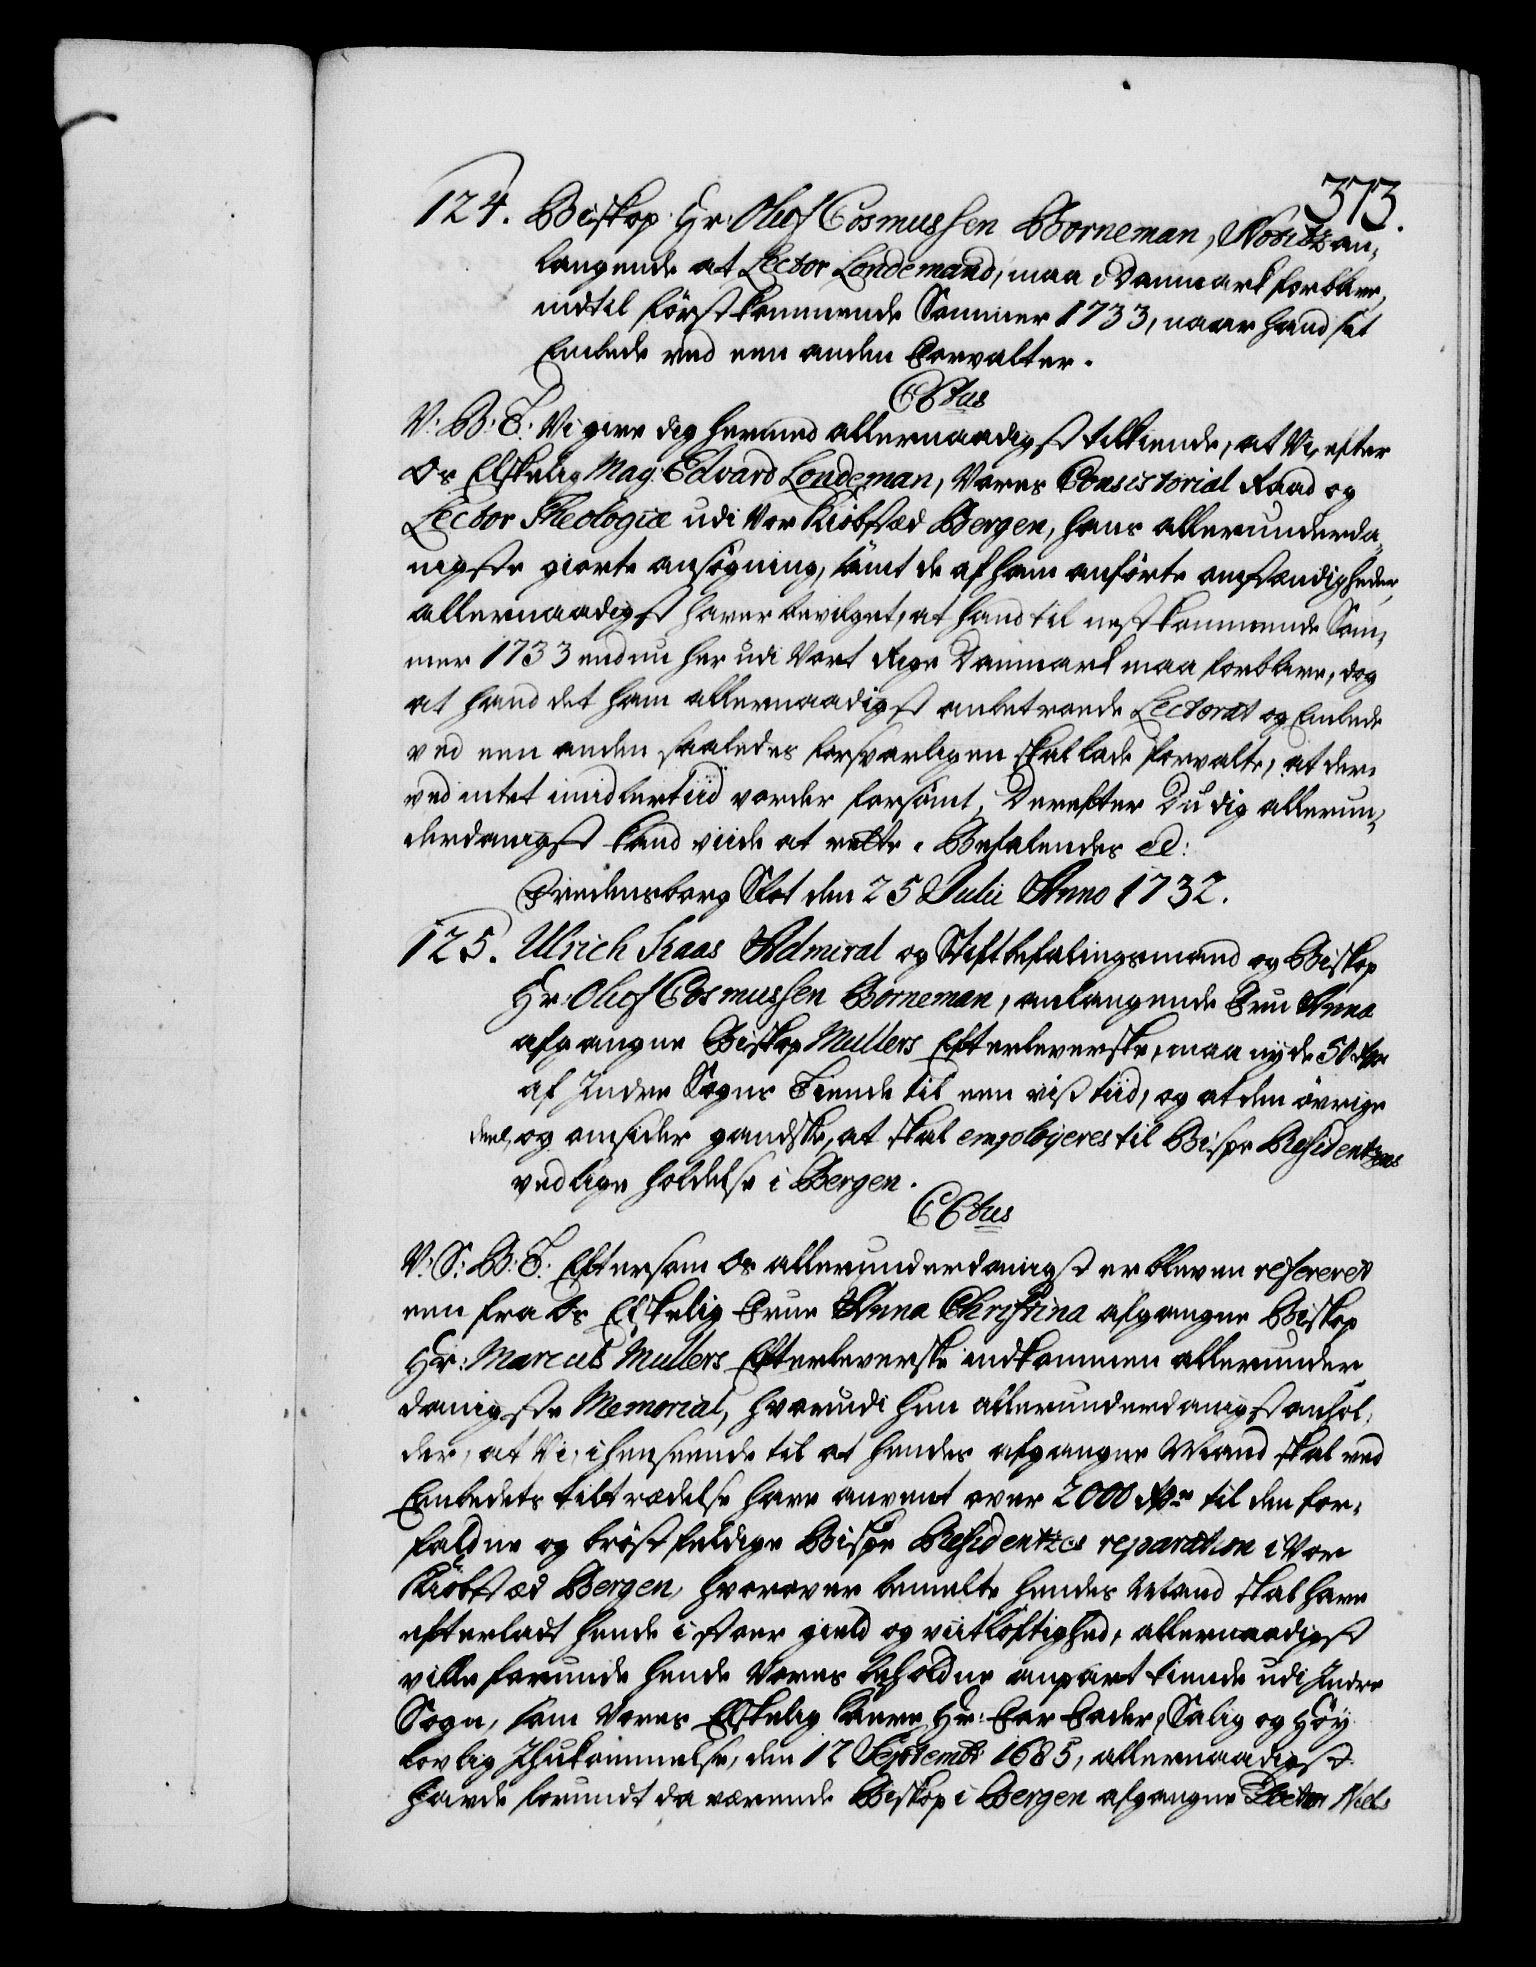 373.
124. Biskop Hr: Oluf Cosmussen Borneman, Notitz an-
langende at Lector Londemand, maa i Danmark forblive,
indtil först kommende Sommer 1733, naar hand sit
Embede ved een anden Forvalter.
CVtus
V: B: T: Vi give dig hermed allernaadigst tilkiende, at Vi, efter
Os Elskelig Mag. Edvard Londeman, Vores Consistorial Raad og
Lector Theologiæ udi Vor Kiöbstæd Bergen, hans allerunderda-
nigste giorte ansögning, samt de af ham anförte omstændigheder,
allernaadigst haver bevilget, at hand til nest kommende Som-
mer 1733 endnu her udi Vort Rige Danmark maa forblive, dog
at hand det ham allernaadigst anbetroede Lectorat og Embede
ved een anden saaledes forsvarligen skal lade forvalte, at der-
ved intet imidlertiid vorder forsömt, Derefter Du dig allerun-
derdanigst kand viide at rette. Befalendes ed:
Fredensborg Slot den 25 Julii Anno 1732.
125. Ulrich Kaas Admiral og Stiftbefalingsmand og Biskop
Hr: Oluf Cosmussen Borneman, anlangende Fru Anna
afgangne Biskop Mullers Efterleverske, maa nyde 50 Rdr
af Indre Sogns Tiende til een vis tiid, og at den övrige
deel, og omsider gandske, at skal employeres til Bispe Residentzens
vedlige holdelse i Bergen.
CVtus
V: S: B: T: Eftersom Os allerunderdanigst er bleven refereret
een fra Os Elskelig Frue Anna Christina afgangne Biskop
Hr: Marcus Mullers Efterleverske indkommen allerunder-
danigste Memorial, hvorudi hun allerunderdanigst anhol-
der, at Vi, i henseende til at hendes afgangne Mand skal ved
Embedets tiltrædelse have anvent over 2000 Rdr til den for-
faldne og bröstfeldige Bispe Residentzes reparation i Vor
Kiöbstæd Bergen, hvorover bemelte hendes Mand skal have
efterladt hende i stoer gield og viitlöftighed, allernaadigst
ville forunde hende Vores beholdne anpart tiende udi Indre
Sogn, som Vores Elskelig kiere Hr: Far Fader, Salig og Höy-
lovlig Ihukommelse, den 12 Septembr 1685, allernaadigst
havde forundt da værende Biskop i Bergen afgangne Doctor Niels